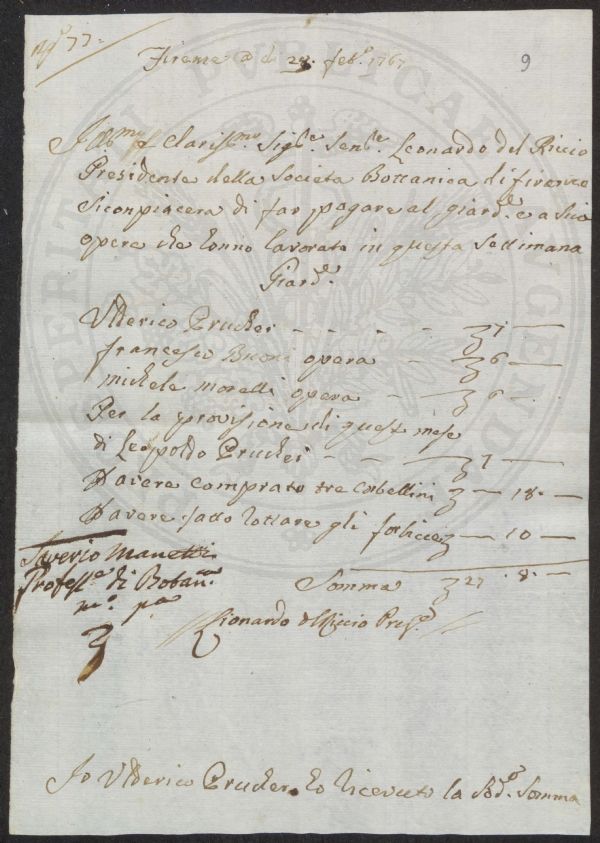 N.º 77.
Firenze a dì 28. feb.º 1767
9
Ill.mo e Clariss.mo Sig.re Sen.re Leonardo del Riccio
Presidente della Societa Bottanica di firenze
Si conpiacera di far pagare al giard.e e a Sua
opere che Conno lavorato in questa Settimana
Giard.e
Ulderico Prucker - - - - - 7 —
francesco Buoni opera - - 6 —
michele morelli opera - - 6 -
Per la provisione di quest mese
di Leopoldo Prucker - - 7 —
Havere comprato tre Corbellini — 18. —
Havere fatto lottare gli forbicie — 10 —
Saverio Manetti
Profess.e di Botan.ca
m.º p.a
Somma 27 . 8. —
Lionardo del Riccio Pres.e
Jo Ulderico Prucker ho ricevuto la Sod.a Somma
PROSPERITATI PUBLICAE AUGENDAE